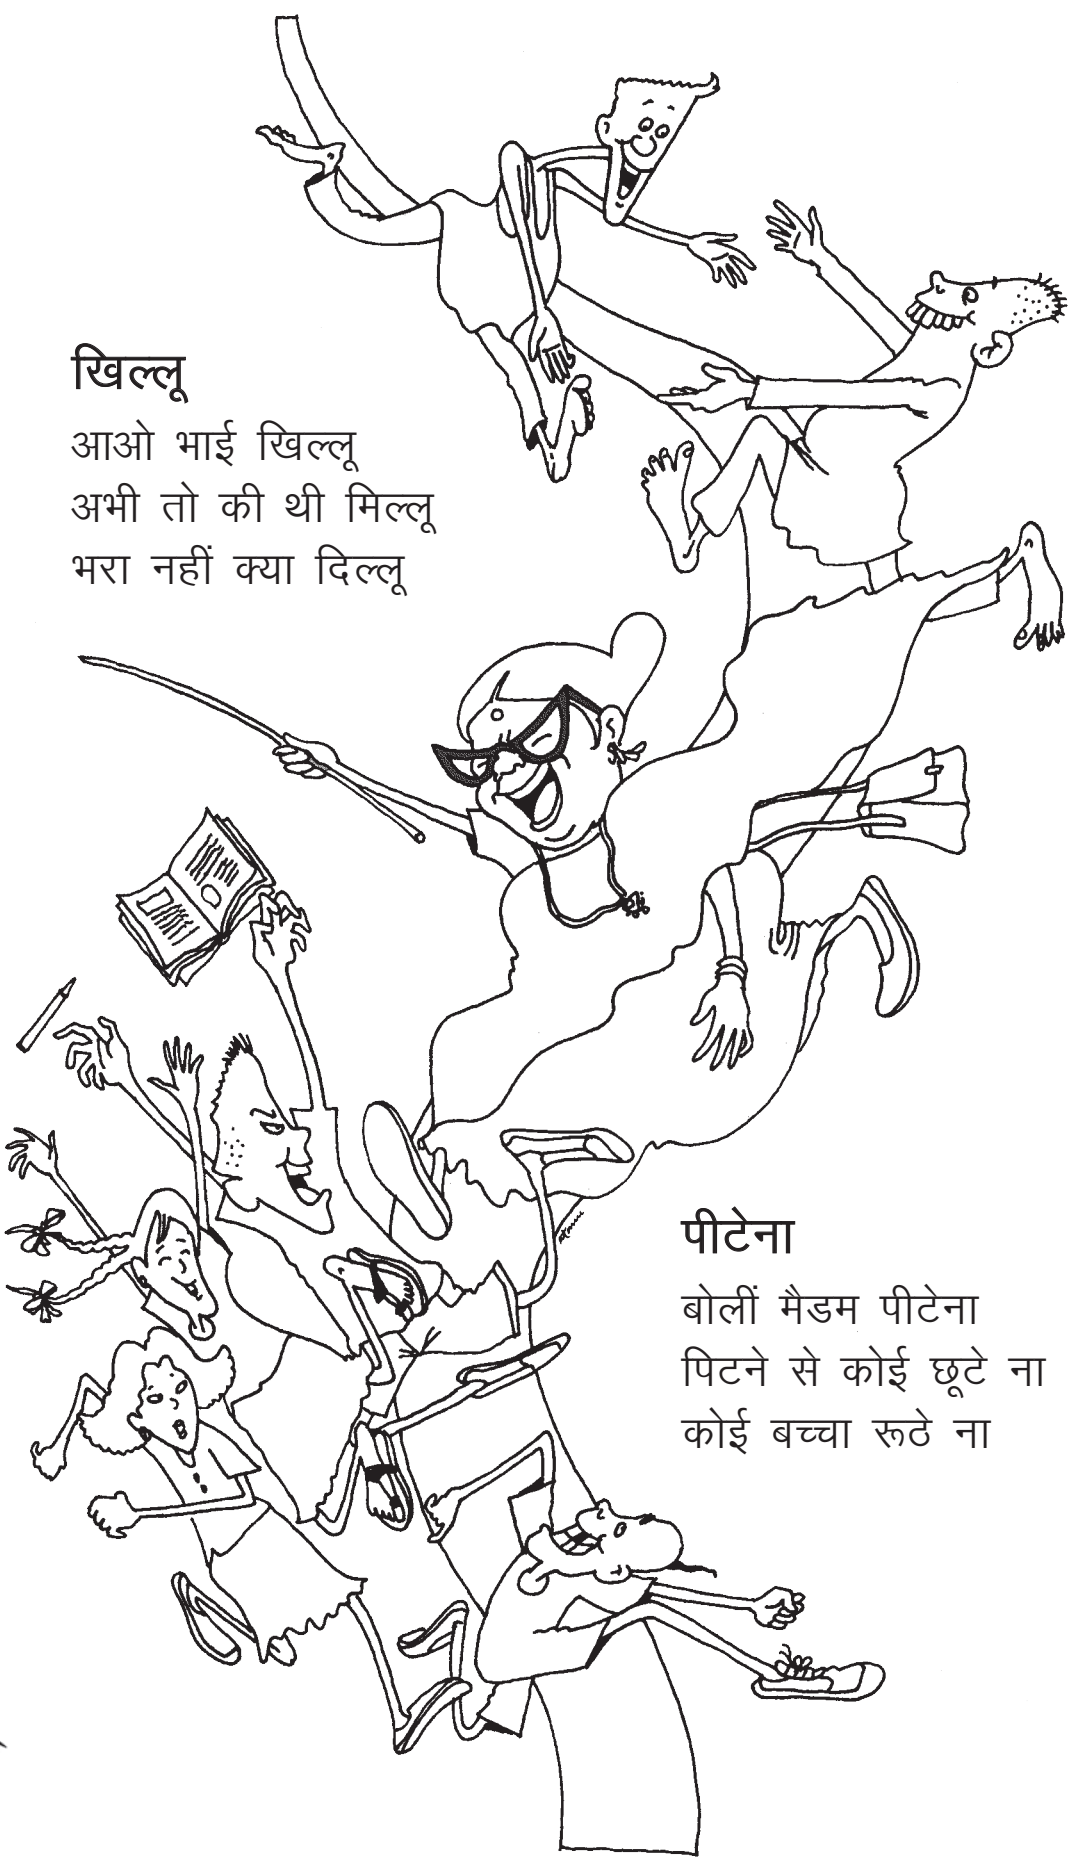 खिल्लू
आओ भाई खिल्लू
अभी तो की थी मिल्लू
भरा नहीं क्या दिल्लू
पीटेना
बोलीं मैडम पीटेना
पिटने से कोई छूटे ना
कोई बच्चा रूठे ना